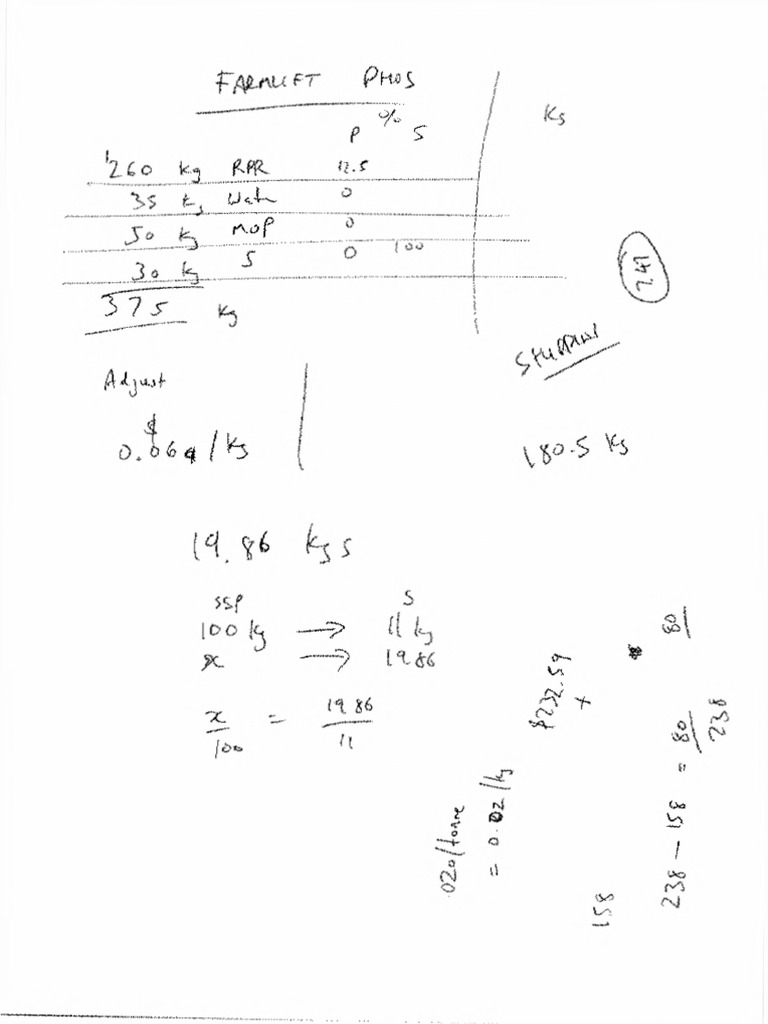 FARMLIFT PHOS
%
P S
Ks
260 kg RPR 12.5
35 kg Water 0
50 kg MOP 0
30 kg S 0 100
375 kg
241
Adjust
$
0.06 /kg
180.5 Kg
19.86 kg s
SSP S
100 kg → 11 kg
x → 19.86
x/100 = 19.86/11
$232.59
+
80
020/tonne
= 0.02/kg
158
238 - 158 = 80/238